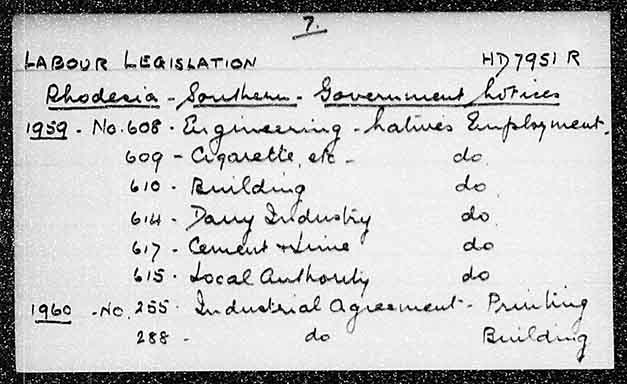 7.
LABOUR LEGISLATION HD7951 R
Rhodesia - Southern - Government Notices
1959 - No. 608 - Engineering - Natives Employment.
609 - Cigarette, etc - do.
610 - Building do
614 - Dairy Industry do
617 - Cement + Lime do
615 - Local Authority do
1960 - No. 255 - Industrial Agreement - Printing
288 - do Building